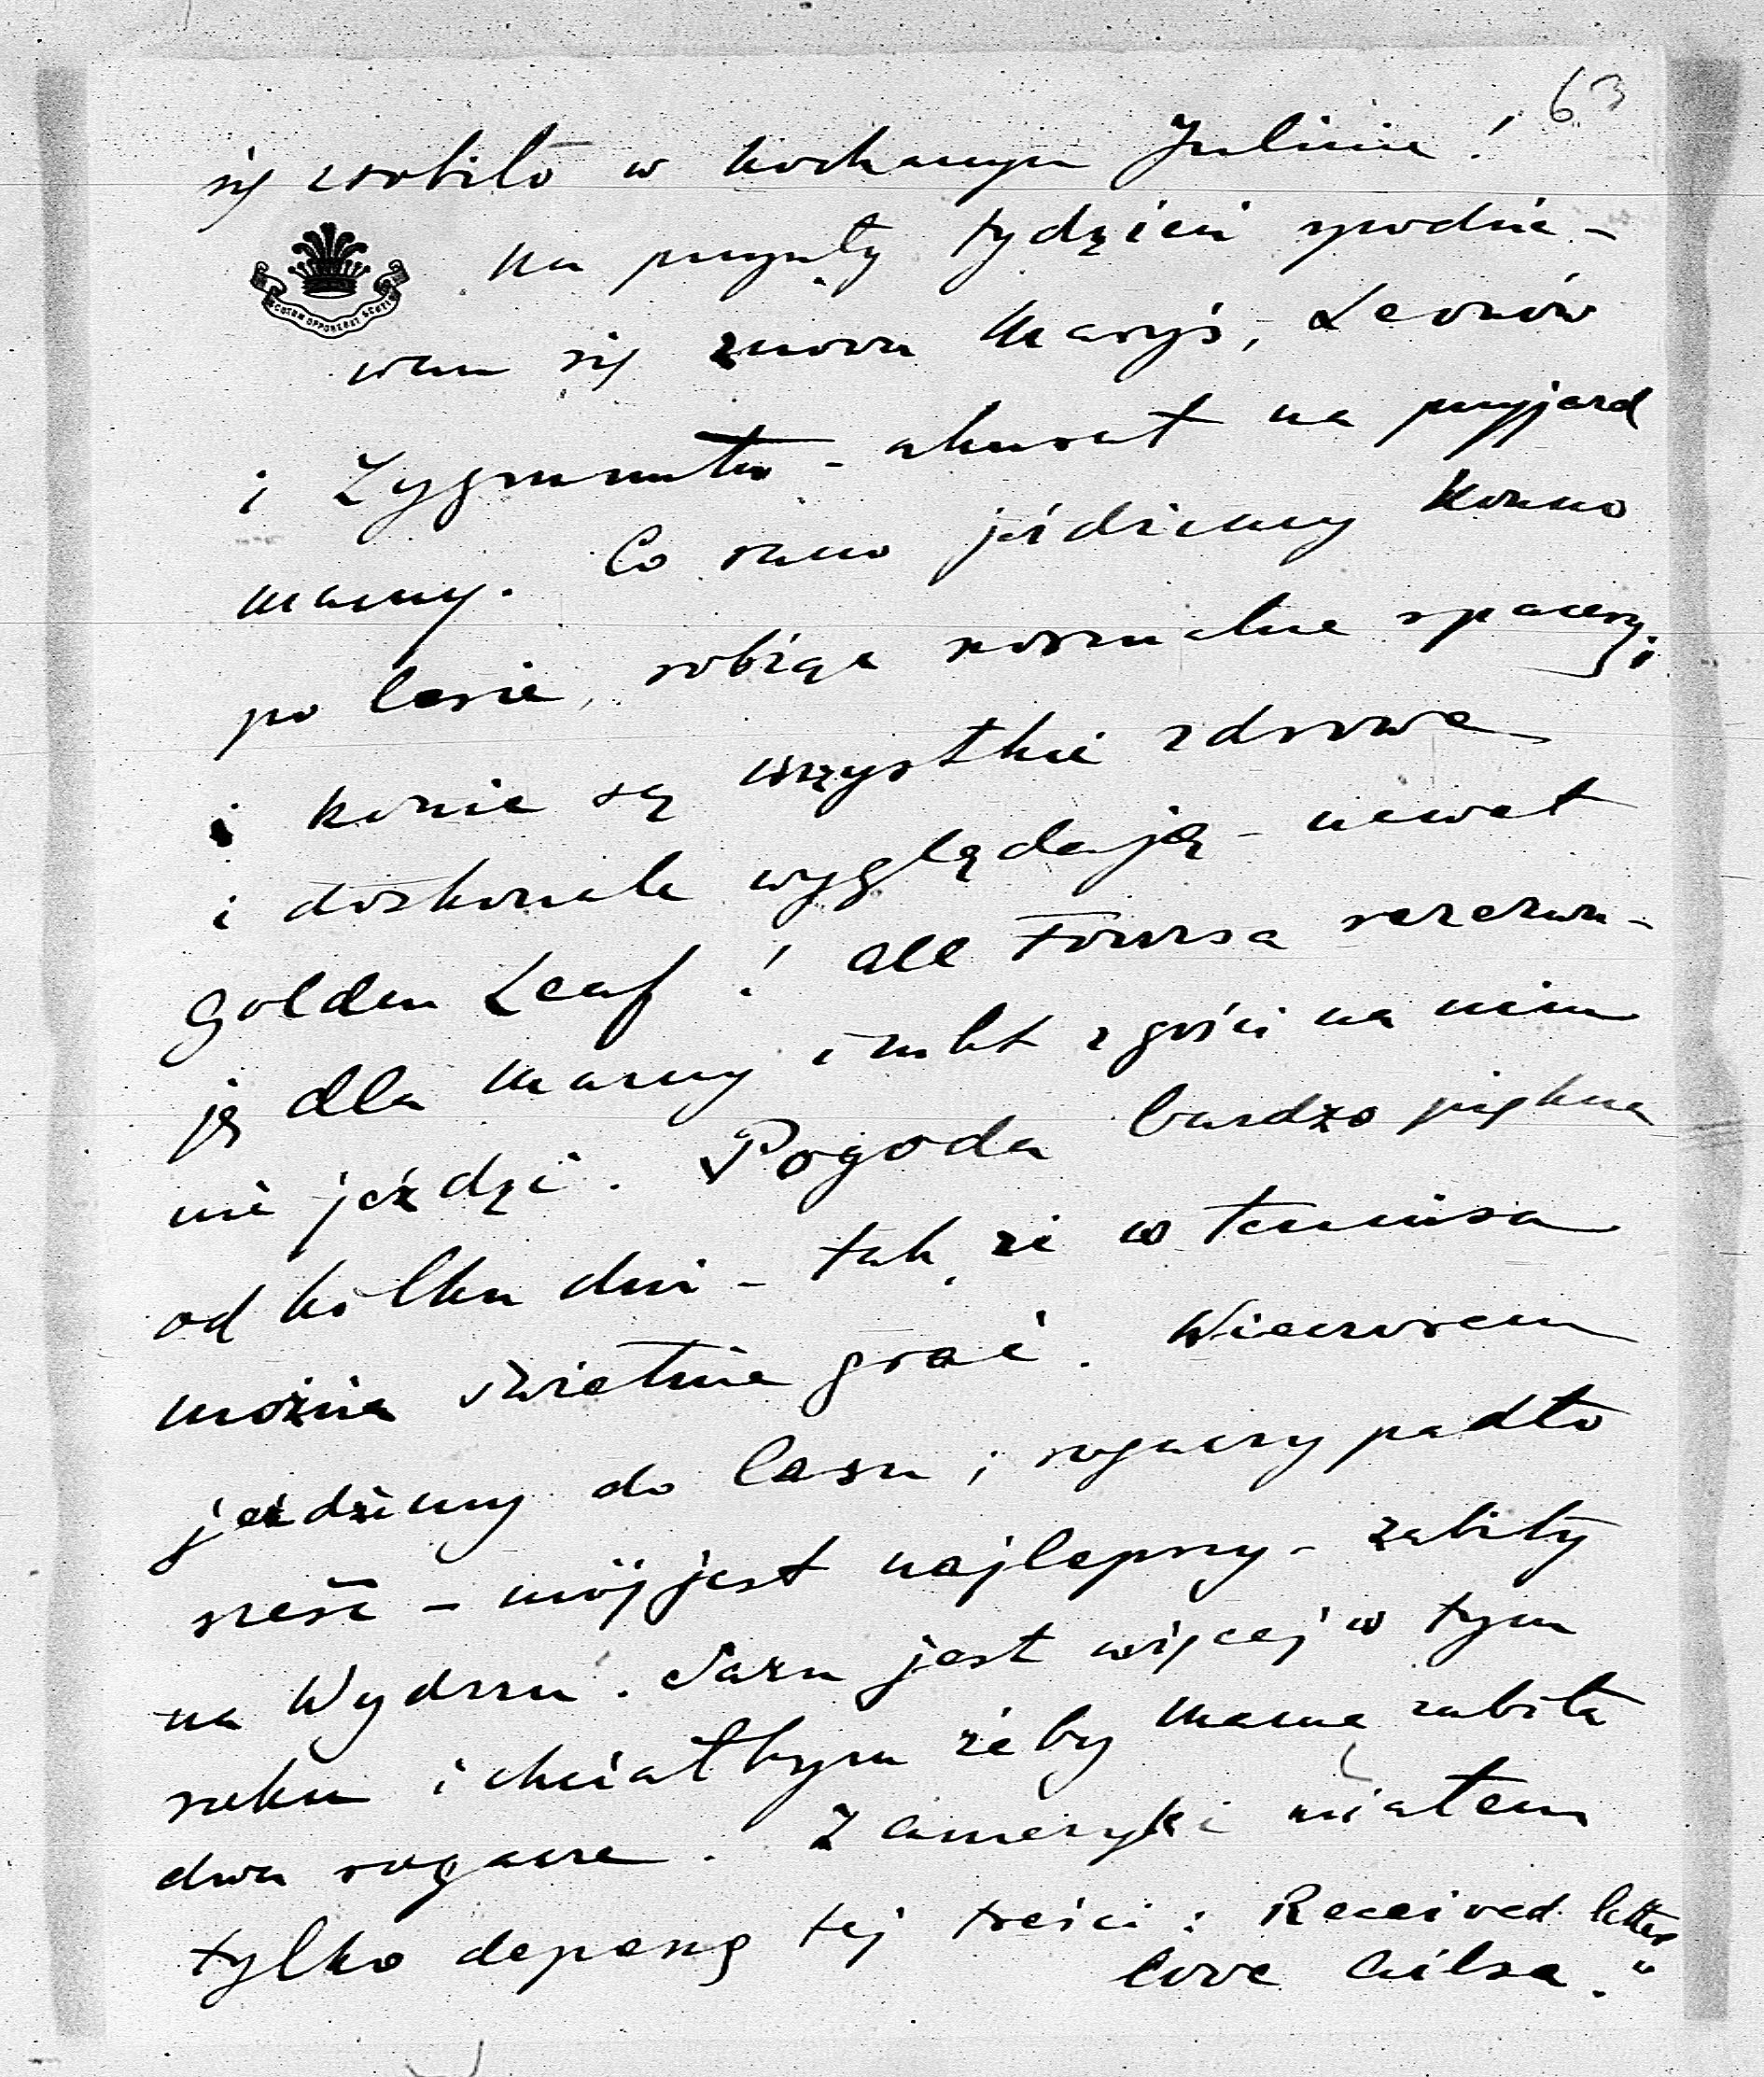 63
się zrobiło w kochanym Julinie!
na przyszły tydzień spodzie-
wam się znowu Maryś, Leonów
i Zygmunta - akurat na przyjazd
mamy. Co rano jeździmy konno
po lesie, robiąc normalne spacery;
i konie są wszystkie zdrowe
i doskonale wyglądają - nawet
Golden Leaf! ale rezerwu-
ję dla mamy i nikt z gości na nim
nie jeździ. Pogoda bardzo piękna
od kilku dni - tak, że w tennisa
można świetnie grać. Wieczorem
jeździmy do lasu; rogaczy padło
sześć - mój jest najlepszy - zabity
na Wydrzu. Sarn jest więcej w tym
roku i chciałbym żeby mama zabiła
dwa rogacze. Z Ameryki miałem
tylko depeszę tej treści: Received letter
love Ailsa."